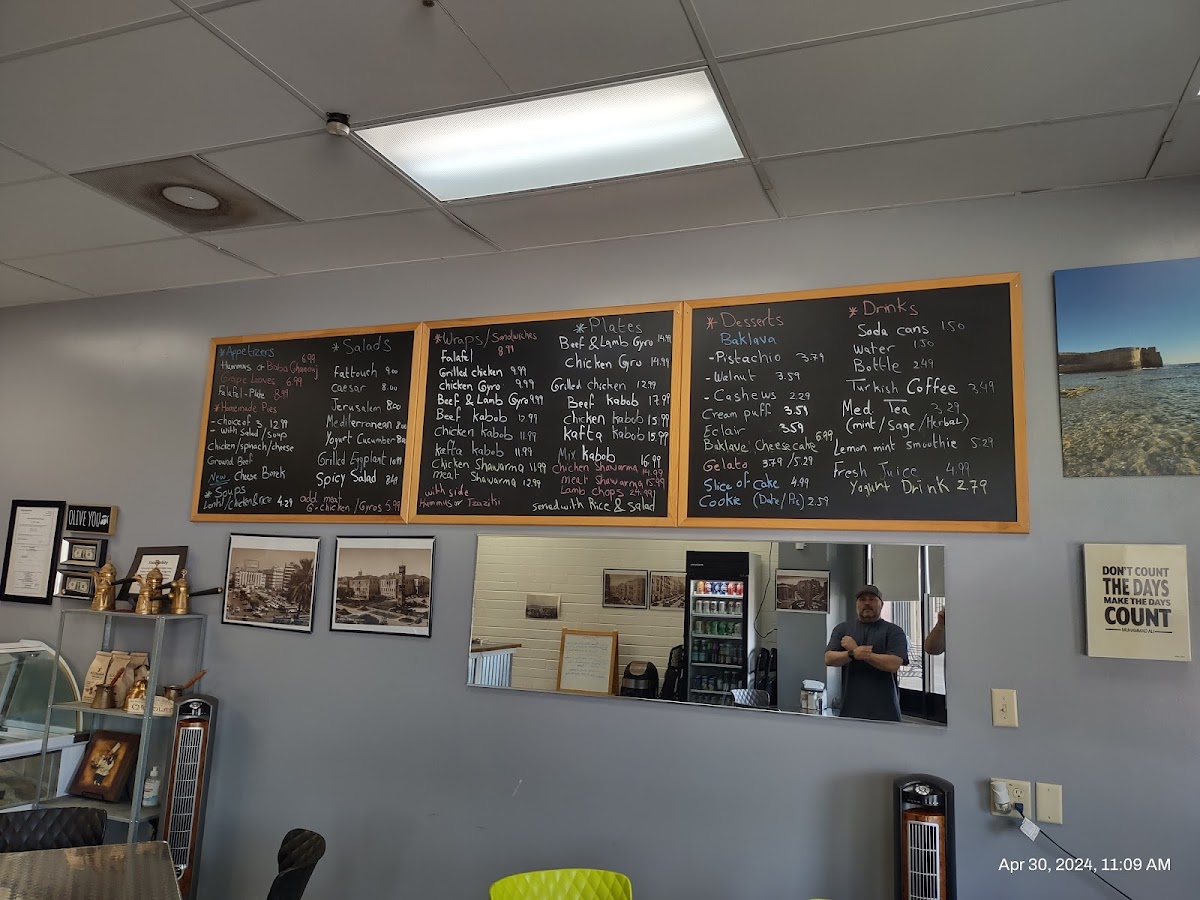 *Appetizers
Hummus or Baba Ghanouj 6.99
Grape Leaves 6.99
Falafel-Plate 8.99
*Homemade Pies
-choice of 3, 12.99
-with Salad/soup
Chicken/spinach/cheese
Ground Beef
New Cheese Borek
*Soups
Lentil/Chicken&rice 4.29
*Salads
Fattouch 9.00
Caesar 8.00
Jerusalem 8.00
Mediterranean 8.00
Yogurt Cucumber 8.00
Grilled Eggplant
Spicy Salad
add meat
G-chicken/Gyros 5.99
*Wraps/Sandwiches
Falafl 8.99
Grilled chicken 9.99
chicken Gyro 9.99
Beef & Lamb Gyro 9.99
Beef kabob 12.99
Chicken kabob 11.99
kafta kabob 11.99
Chicken Shawarma 11.99
meat Shawarma 12.99
with side
Hummus or Tzaziki
*Plates
Beef & Lamb Gyro 14.99
Chicken Gyro 14.99
Grilled chicken 12.99
Beef kabob 17.99
chicken kabob 15.99
kafta kabob 15.99
Mix kabob 16.99
Chicken Shawarma 14.99
meat Shawarma 15.99
Lamb chops 24.99
served with Rice & Salad
*Desserts
Baklava
-Pistachio 3.79
-Walnut 3.59
-Cashews 2.29
Cream puff 3.59
Eclair 3.59
Baklave Cheesecake 6.99
Gelato 3.79/5.29
Slice of cake 4.99
Cookie (Date/Pis) 2.59
*Drinks
Soda cans 1.50
Water 1.50
Bottle 2.49
Turkish Coffee 3.49
Med. Tea 3.29
(mint/Sage/Herbal)
Lemon mint smoothie 5.29
Fresh Juice 4.99
Yogurt Drink 2.79
OLIVE YOU
DON'T COUNT
THE DAYS
MAKE THE DAYS
COUNT
MUHAMMAD ALI
Apr 30, 2024, 11:09 AM